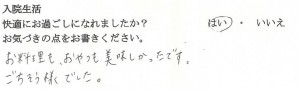 入院生活
快適にお過ごしになれましたか？ はい ・ いいえ
お気づきの点をお書きください。
お料理も、おやつも美味しかったです。
ごちそう様でした。